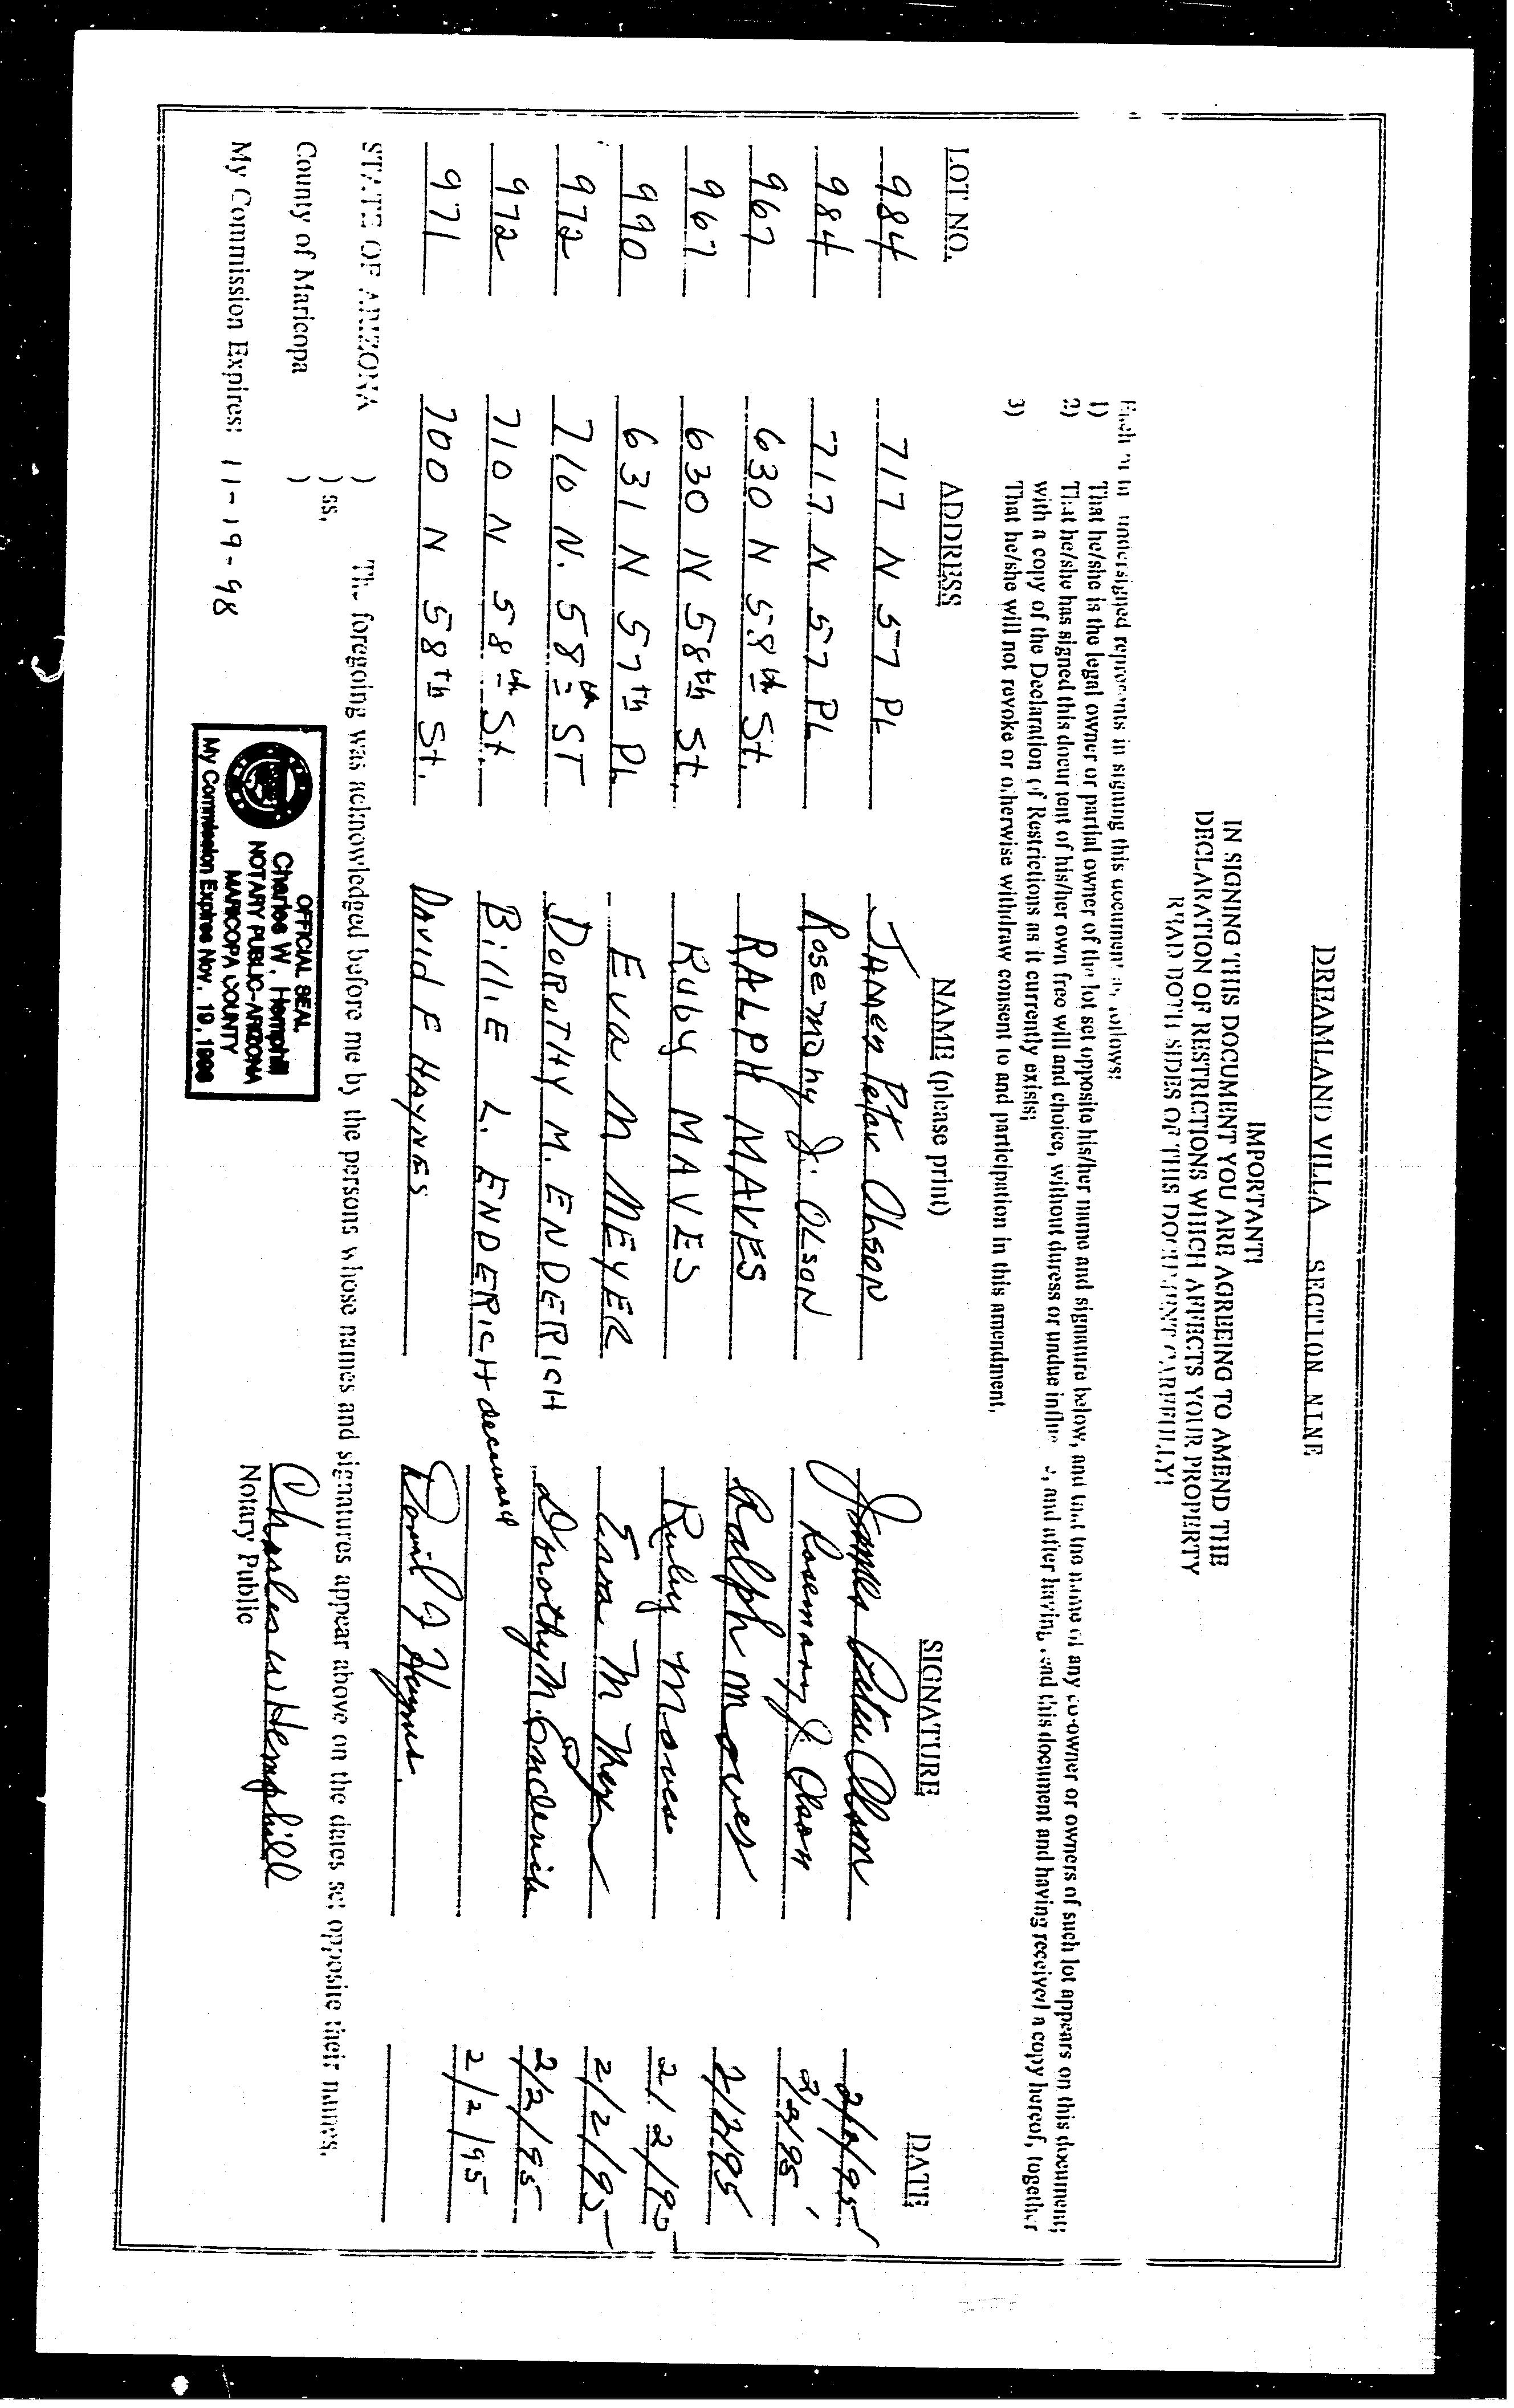 DREAMLAND VILLA SECTION NINE
IMPORTANT!
IN SIGNING THIS DOCUMENT YOU ARE AGREEING TO AMEND THE
DECLARATION OF RESTRICTIONS WHICH AFFECTS YOUR PROPERTY
READ BOTH SIDES OF THIS DOCUMENT CAREFULLY!
Each of the undersigned represents in signing this document as follows:
1) That he/she is the legal owner or partial owner of the lot set opposite his/her name and signature below, and that the name of any co-owner or owners of such lot appears on this document;
2) That he/she has signed this document of his/her own free will and choice, without duress or undue influ , and after having read this document and having received a copy hereof, together
with a copy of the Declaration of Restrictions as it currently exists;
3) That he/she will not revoke or otherwise withdraw consent to and participation in this amendment.
LOT NO. ADDRESS NAME (please print) SIGNATURE DATE
984 717 N 57 PL James Peter Olson James Peter Olson 2/2/95
984 717 N 57 PL Rosemary J. OLSON Rosemary J. Olson 2/2/95
967 630 N 58th St. RALPH MAVES Ralph Maves 2/2/95
967 630 N 58th St. Ruby MAVES Ruby Maves 2/2/95
990 631 N 57th PL Eva M MEYER Eva M Meyer 2/2/95
972 710 N. 58th ST DOROTHY M. ENDERICH Dorothy M. Enderich 2/2/95
972 710 N 58th St. BilliE L. ENDERICH deceased 2/2/95
971 700 N 58th St. DAVID F HAYNES David F Haynes.
STATE OF ARIZONA )
) ss. The foregoing was acknowledged before me by the persons whose names and signatures appear above on the dates set opposite their names.
County of Maricopa )
My Commission Expires: 11-19-98
Charles W Hemphill
Notary Public
OFFICIAL SEAL
Charles W. Hemphill
NOTARY PUBLIC-ARIZONA
MARICOPA COUNTY
My Commission Expires Nov. 19, 1998